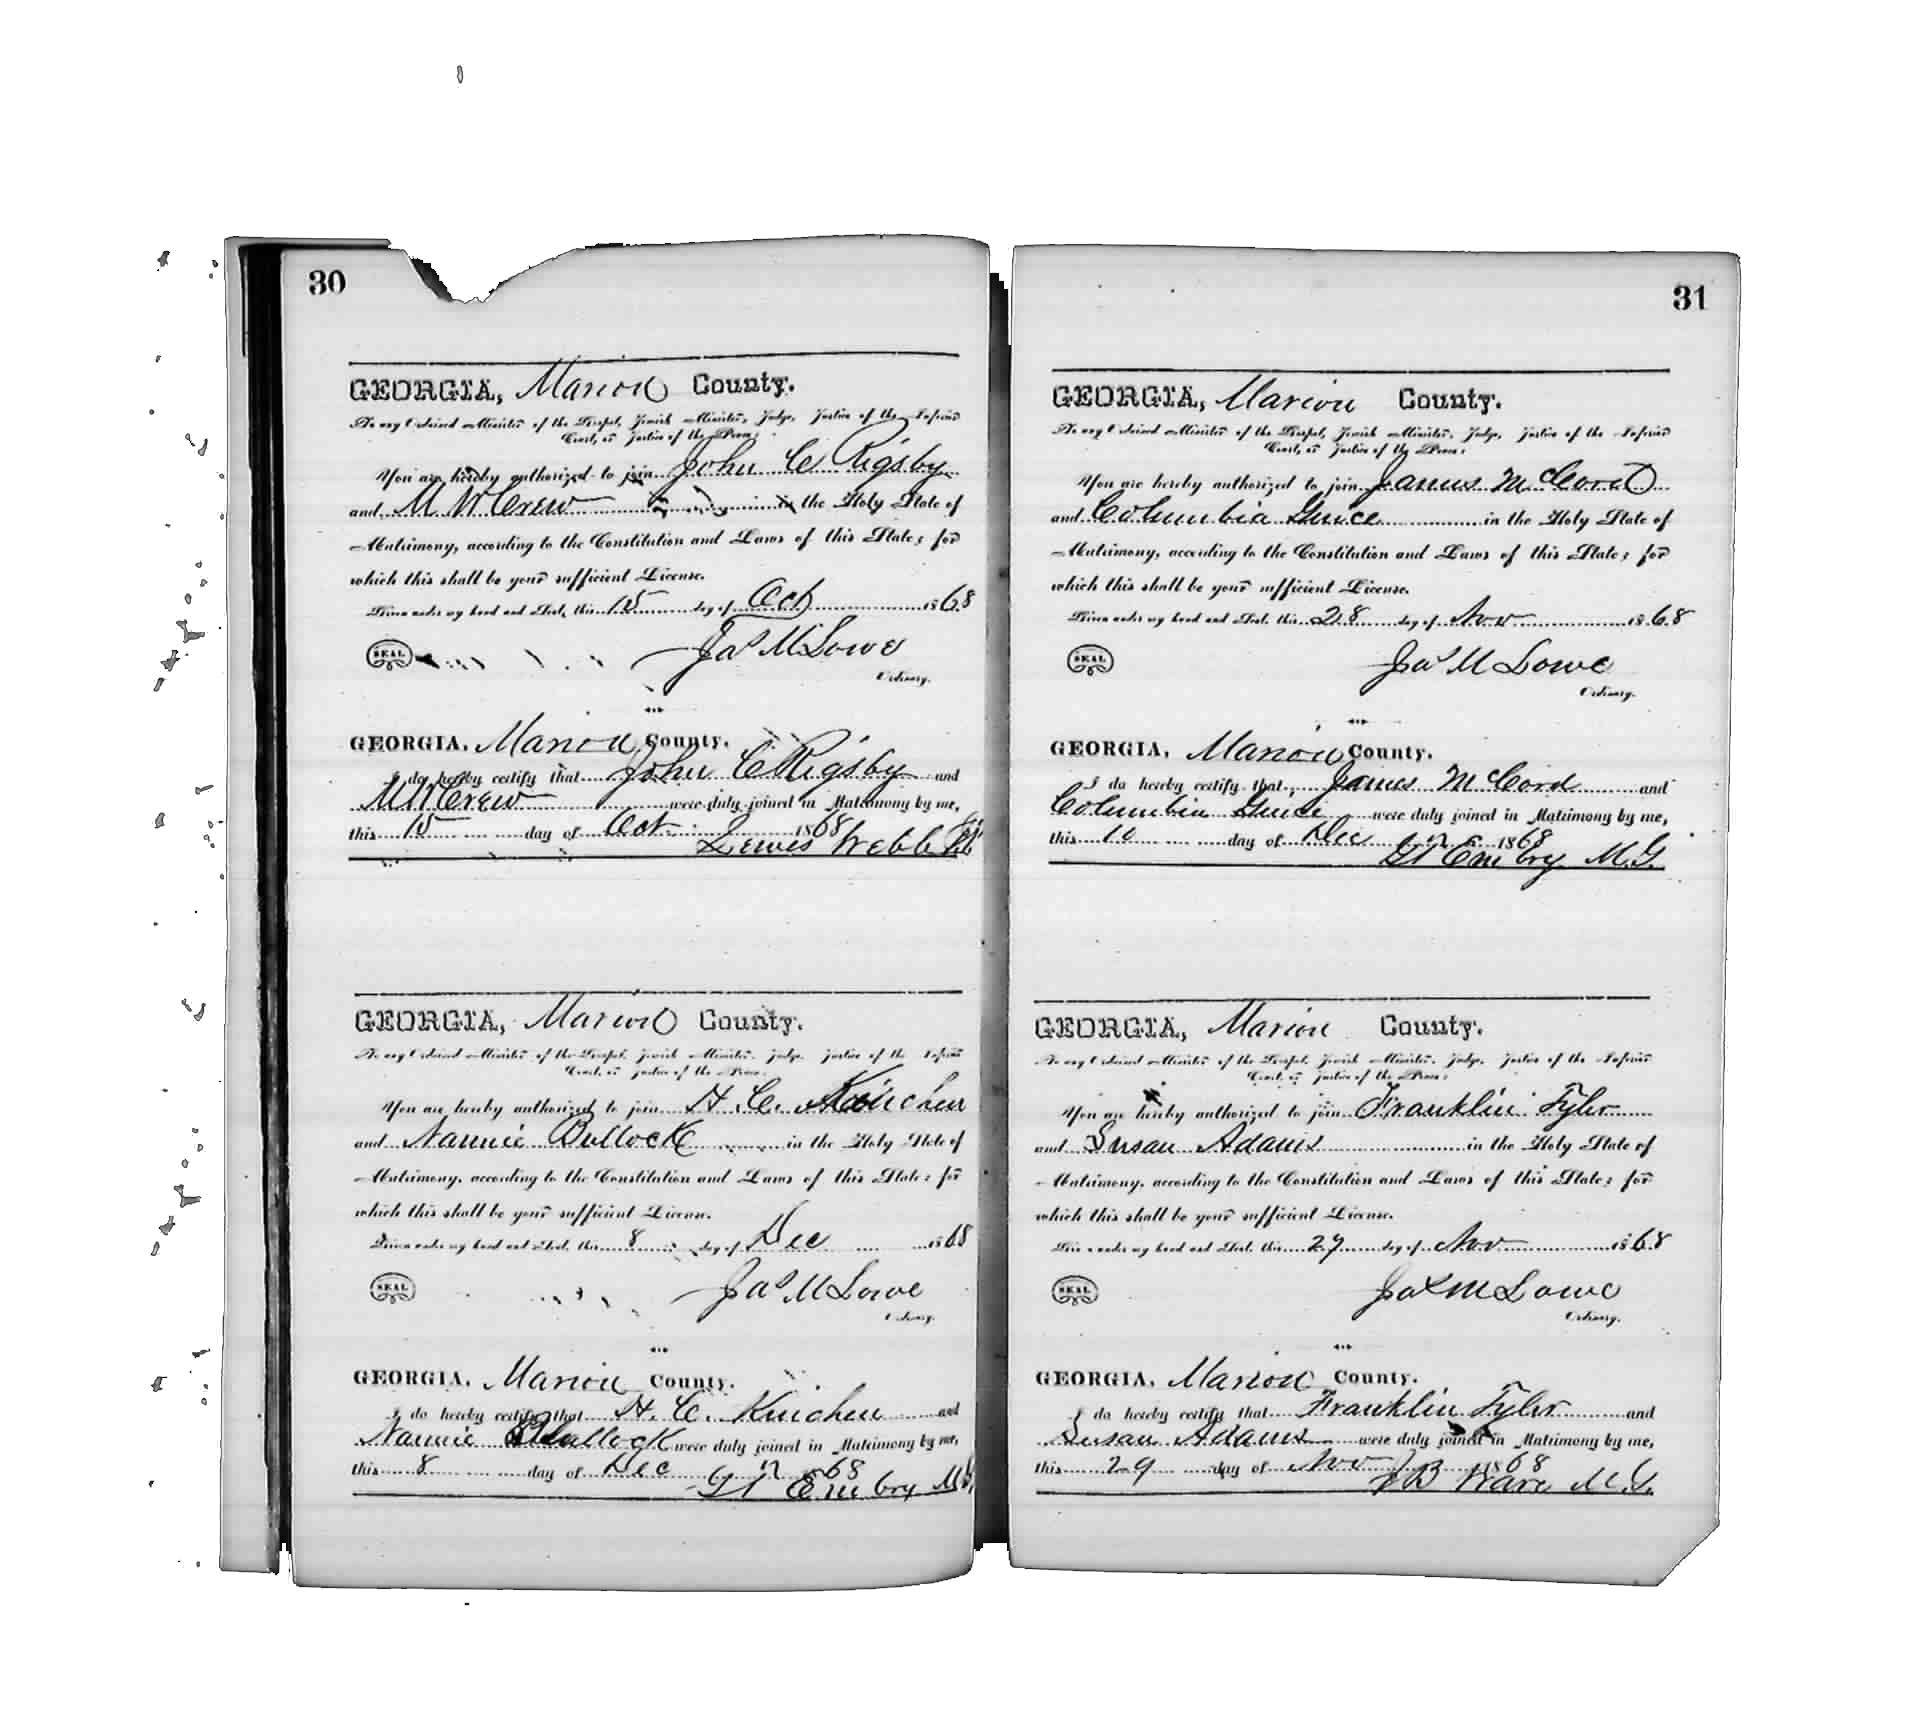 30
GEORGIA, Marion County.
To any Ordained Minister of the Gospel, Jewish Minister, Judge, Justice of the Inferior
Court, or Justice of the Peace:
You are hereby authorized to join John C Rigsby
and M W Crew in the Holy State of
Matrimony, according to the Constitution and Laws of this State; for
which this shall be your sufficient License.
Given under my hand and Seal, this 15 day of Oct 1868
SEAL Jas M Lowe
Ordinary.
GEORGIA, Marion County.
I do hereby certify that John C Rigsby and
M W Crew were duly joined in Matrimony by me,
this 15 day of Oct 1868
Lewis Webb
GEORGIA, Marion County.
To any Ordained Minister of the Gospel, Jewish Minister, Judge, Justice of the Inferior
Court, or Justice of the Peace:
You are hereby authorized to join H. C.
and Nannie Bullock in the Holy State of
Matrimony, according to the Constitution and Laws of this State; for
which this shall be your sufficient License.
Given under my hand and Seal, this 8 day of Dec 1868
SEAL Jas M Lowe
Ordinary.
GEORGIA, Marion County.
I do hereby certify that H. C. and
Nannie Bullock were duly joined in Matrimony by me,
this 8 day of Dec 1868
Embry M.G.
31
GEORGIA, Marion County.
To any Ordained Minister of the Gospel, Jewish Minister, Judge, Justice of the Inferior
Court, or Justice of the Peace:
You are hereby authorized to join James McCord
and Columbia Guice in the Holy State of
Matrimony, according to the Constitution and Laws of this State; for
which this shall be your sufficient License.
Given under my hand and Seal, this 28 day of Nov 1868
SEAL Jas M Lowe
Ordinary.
GEORGIA, Marion County.
I do hereby certify that James McCord and
Columbia Guice were duly joined in Matrimony by me,
this 10 day of Dec 1868
Embry M.G.
GEORGIA, Marion County.
To any Ordained Minister of the Gospel, Jewish Minister, Judge, Justice of the Inferior
Court, or Justice of the Peace:
You are hereby authorized to join Franklin Tyler
and Susan Adams in the Holy State of
Matrimony, according to the Constitution and Laws of this State; for
which this shall be your sufficient License.
Given under my hand and Seal, this 27 day of Nov 1868
SEAL Jas M Lowe
Ordinary.
GEORGIA, Marion County.
I do hereby certify that Franklin Tyler and
Susan Adams were duly joined in Matrimony by me,
this 29 day of Nov 1868
B Ware M.G.